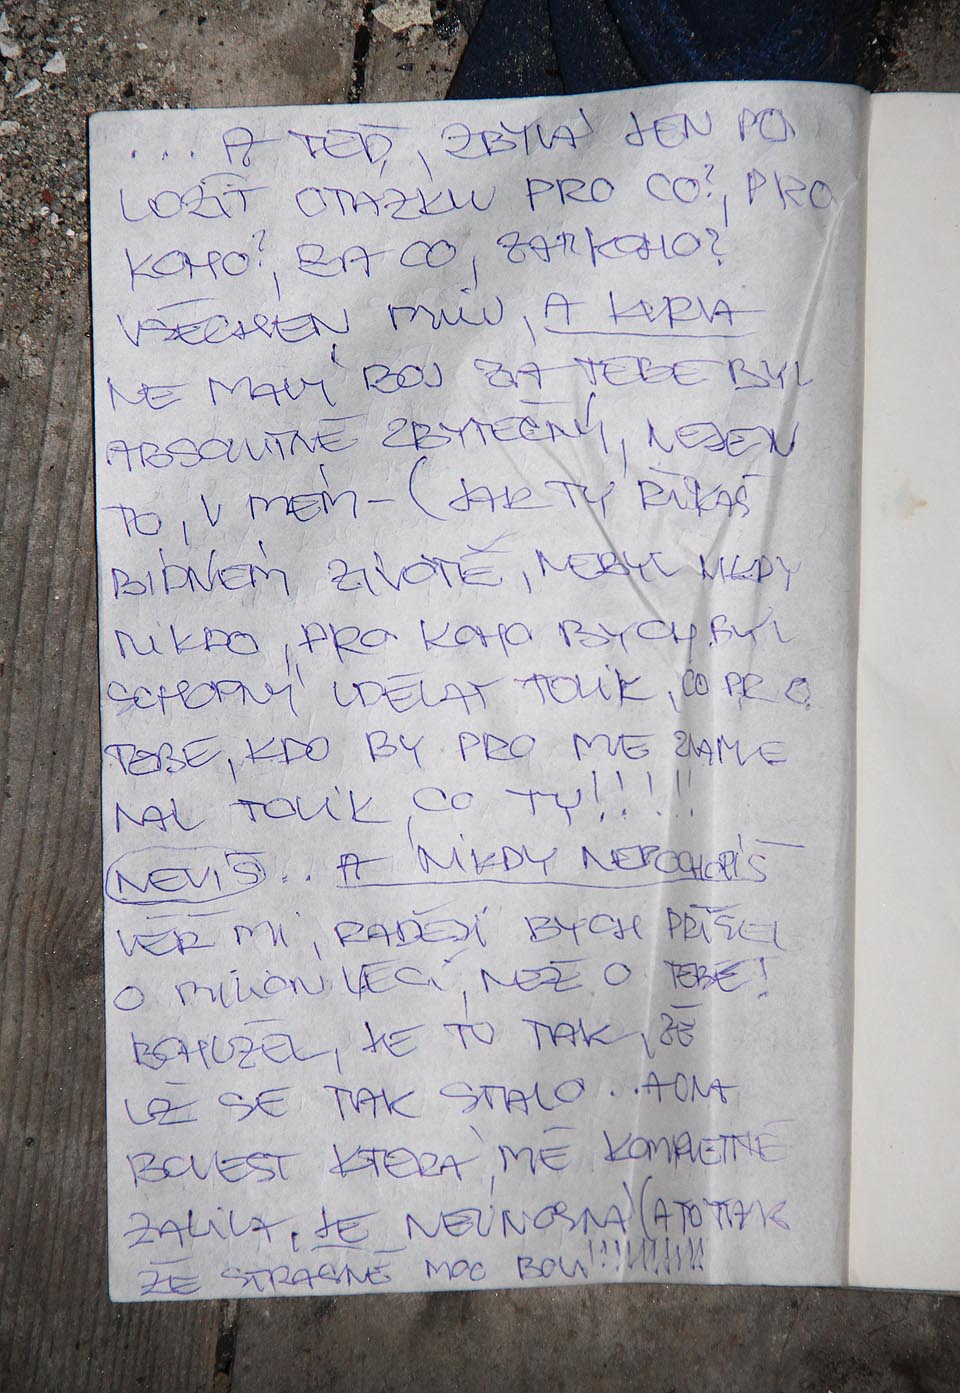 ... A TEĎ, ZBÝVÁ JEN PO
LOŽIT OTÁZKU PRO CO?, PRO
KOHO?, ZA CO, ZA KOHO?
VŠECHEN, MŮJ, A KURVA
NE MALÝ BOJ ZA TEBE BYL
ABSOLUTNĚ ZBYTEČNÝ, NEJEN
TO, V MÉM - (JAK TY ŘÍKÁŠ
BÍDNÉM ŽIVOTĚ, NEBYL NIKDY
NIKDO, PRO KOHO BYCH BYL
SCHOPNÝ UDĚLAT TOLIK, CO PRO
TEBE, KDO BY PRO ME ZNAME
NAL TOLIK, CO TY!!!!!
NEVÍŠ.. A NIKDY NEPOCHOPÍŠ
VĚŘ MI, RADĚJI BYCH PŘIŠEL
O MILION VĚCÍ, NEŽ O TEBE!
BOHUŽEL, JE TO TAK, ŽE
UŽ SE TAK STALO .. A ONA
BOLEST KTERÁ, MĚ KOMPLETNĚ
ZALILA, JE NEÚNOSNÁ (A TO TAK
ŽE STRAŠNĚ MOC BOLÍ!!!!!!!!!!